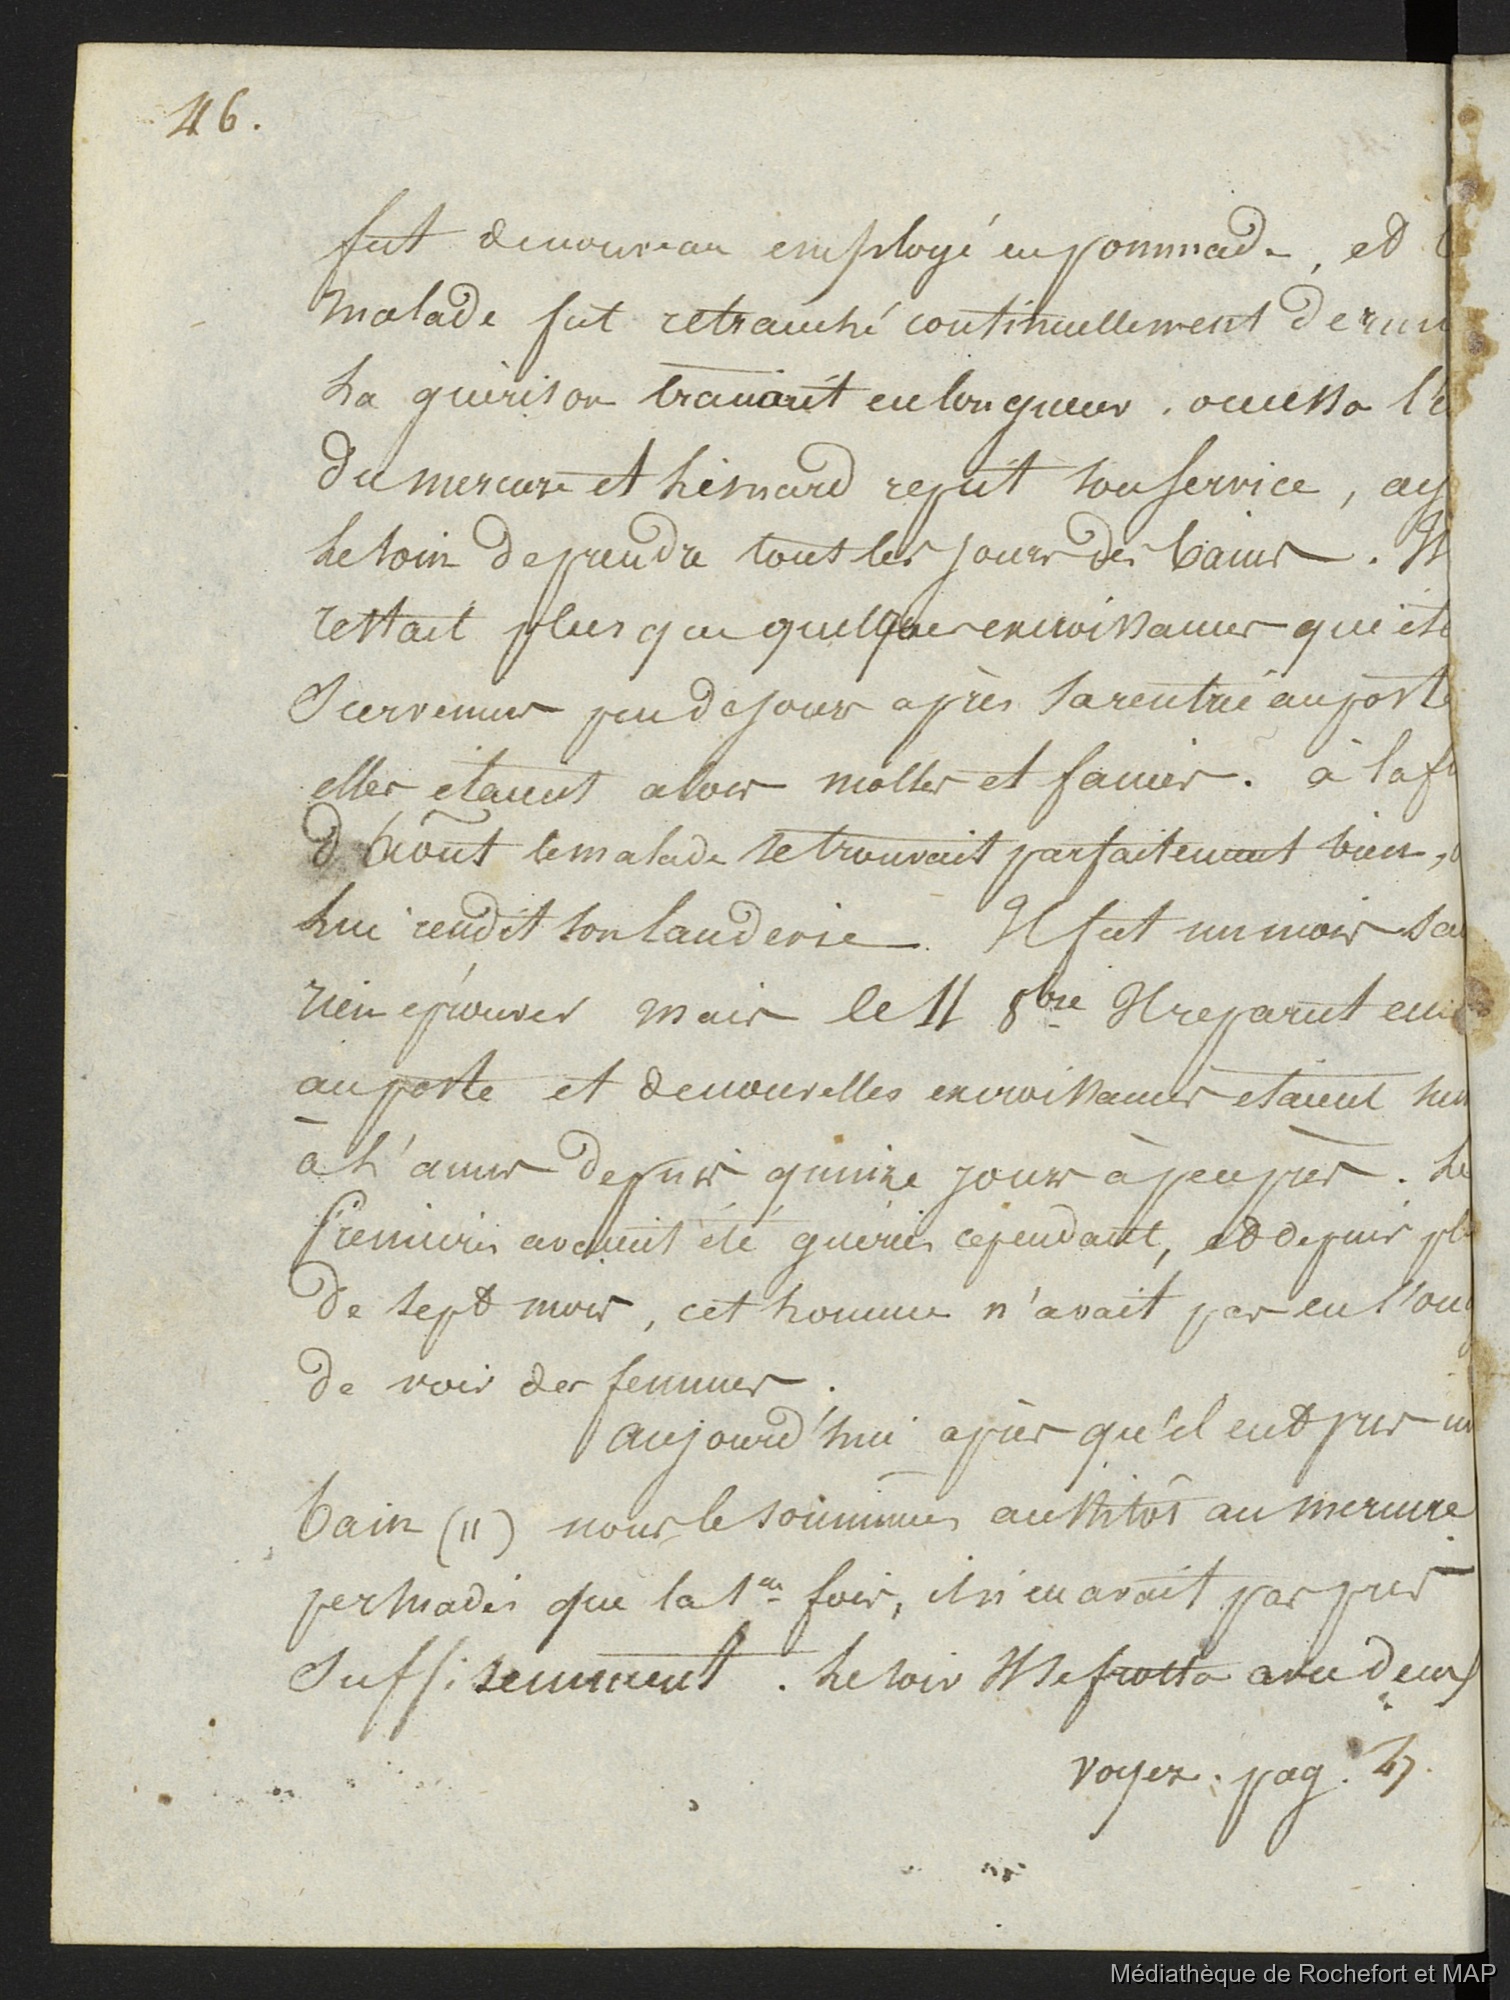 46.
fut denouveau employé en pommade, et
malade fut retranché continuellement de
La guérison trainait en longueur. on cessa l'
Du mercure et Lesnard reprit son service, ay
le soin de prendre tout les jours des bains. Il
restait plus que quelques excroissances qui ét
survenues peu de jours après sa rentrée au poste
elles etaient alors molles et fanées. à la f
d'Août le malade se trouvait parfaitement bien,
lui rendit son landerie. Il fut un mois sa
rien eprouver mais le 11 8bre Il reparut en
au poste et de nouvelles excroissances etaient
à l'anus depuis quinze jours à peu près. Le
Premières avaient été guéries cependant, et depuis pl
de sept mois, cet homme n'avait pas eu l'
de voir des femmes.
aujourd'hui après qu'il eut pris un
bain (11) nous le soumîmes aussitôt au mercure
persuadés que la 1ere fois, il n'en avait pas pris
suffisemment. Le soir Il se frotta avec deux
voyez. pag. 47.
Médiathèque de Rochefort et MAP